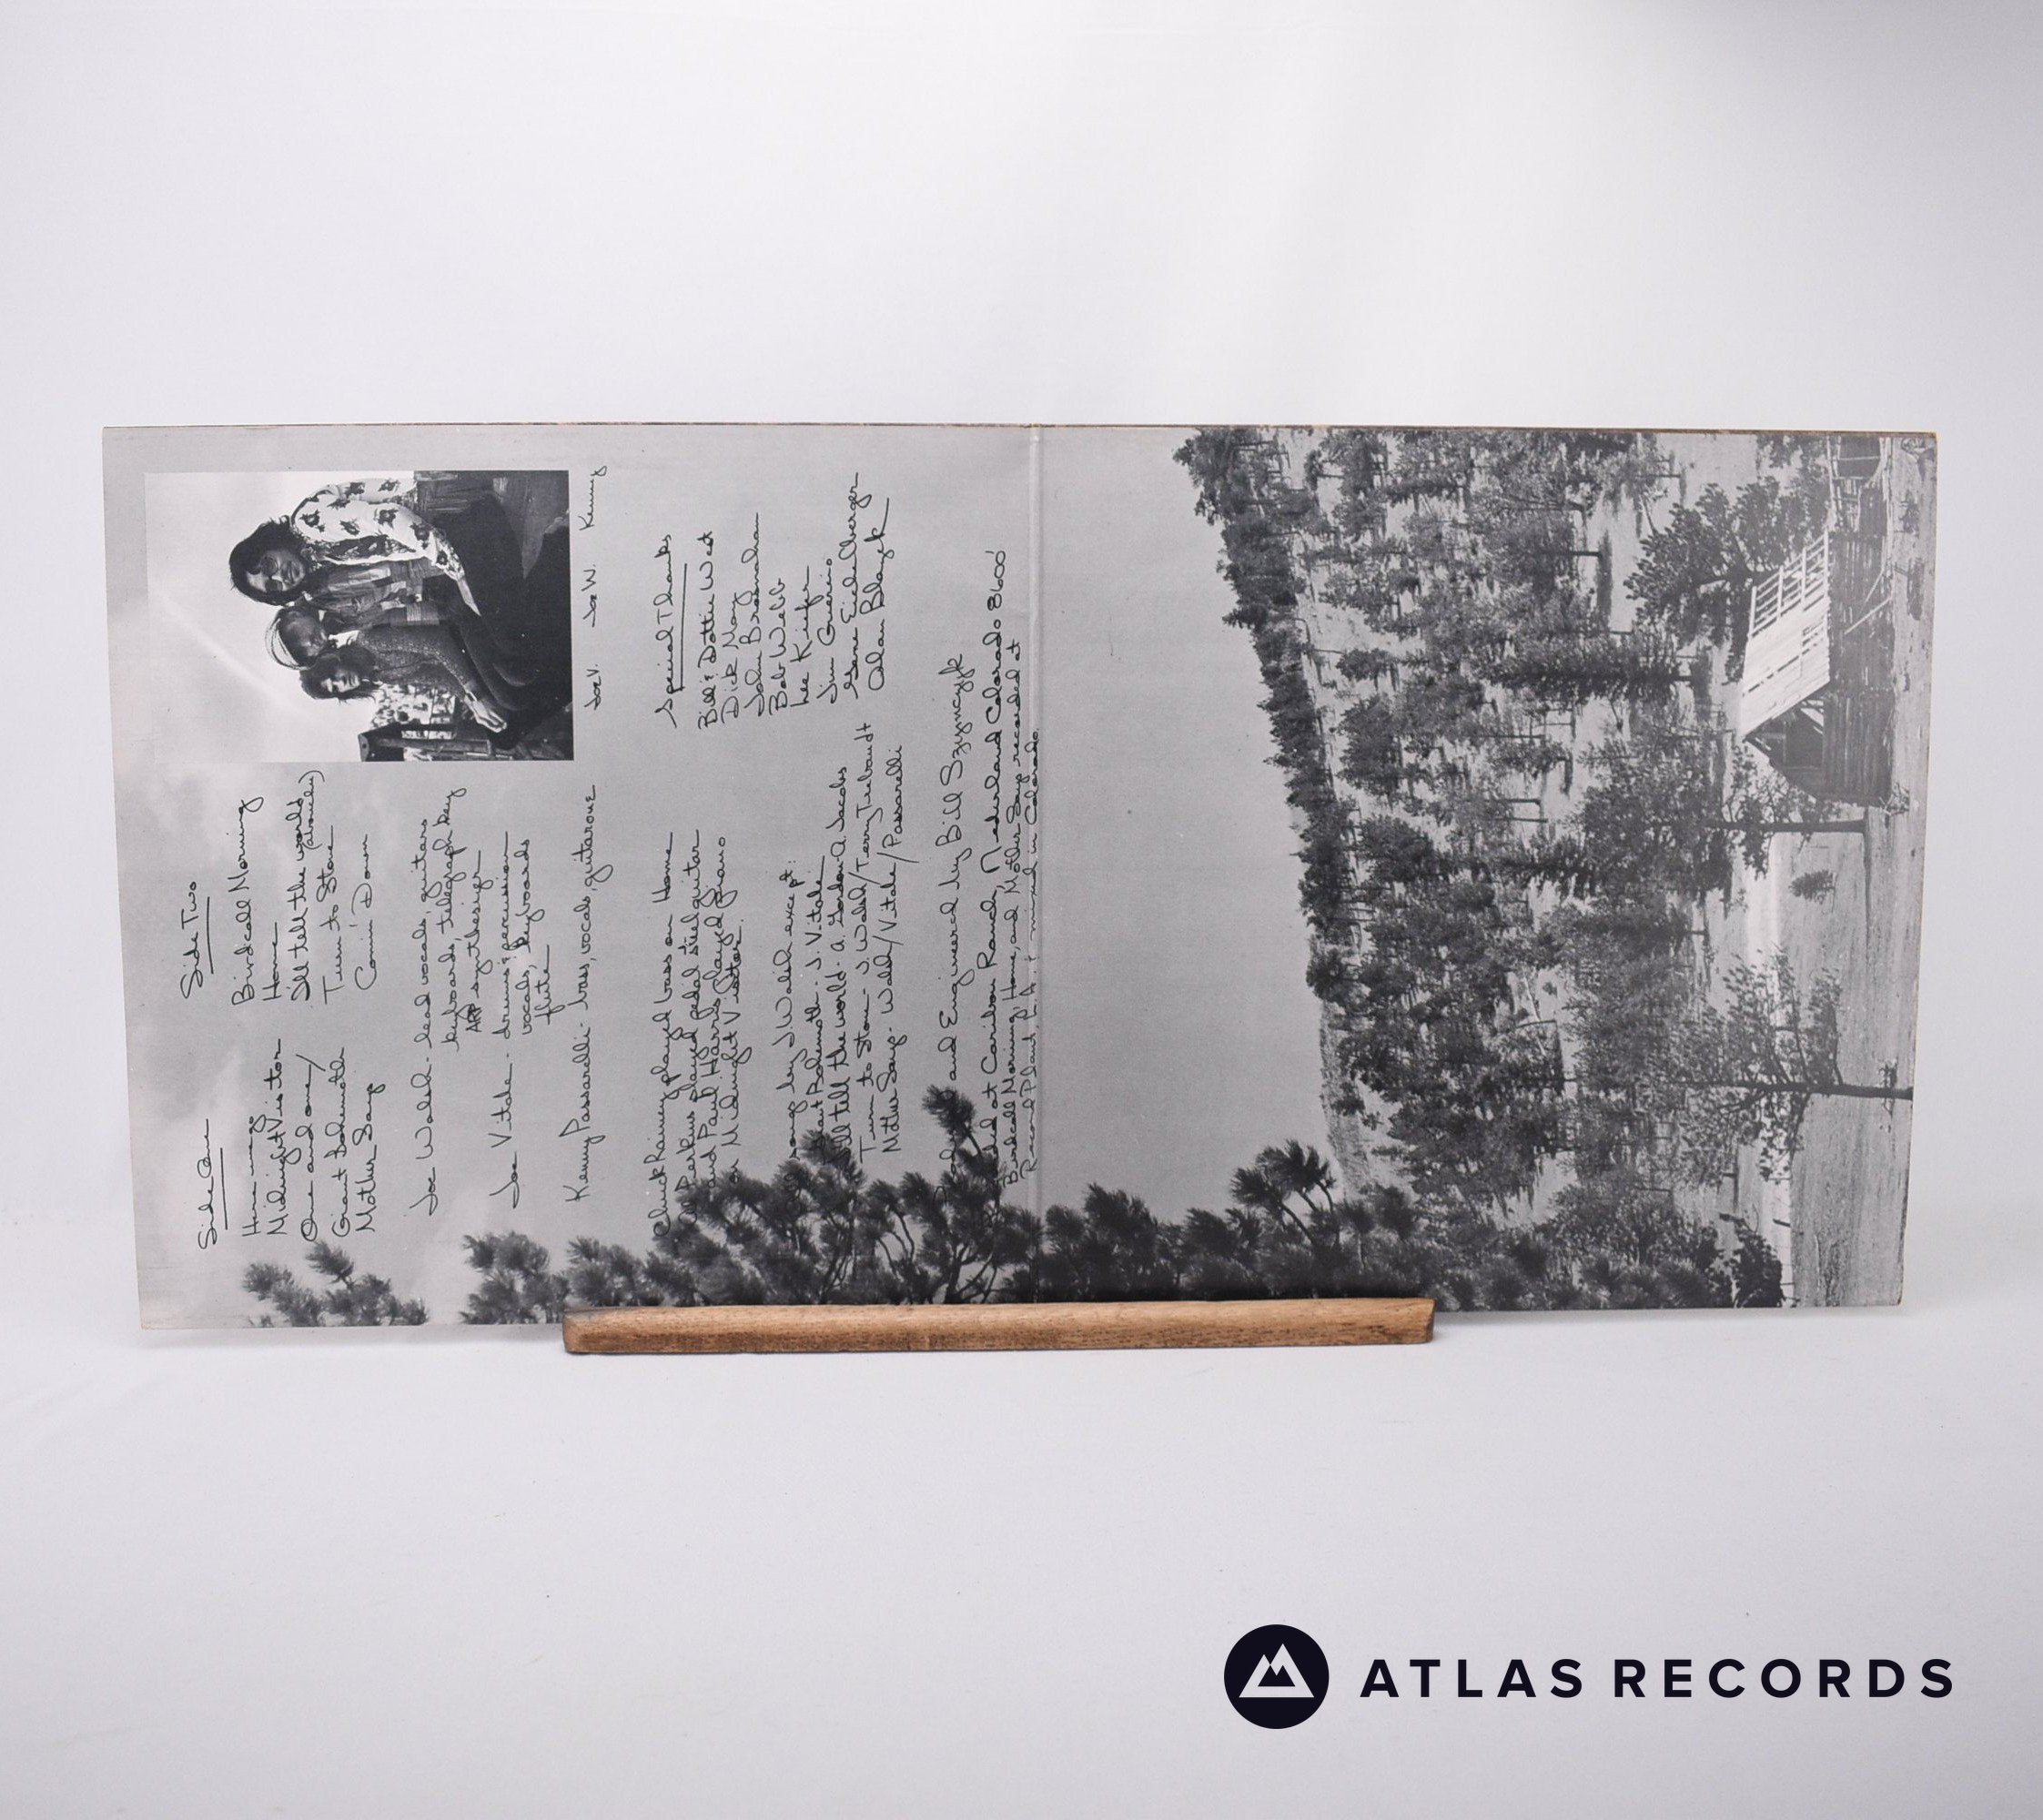 Side One
Here we go
Midnight Visitor
One and one
Giant Bohemoth
Mother Says
Side Two
Birdcall Morning
Home
I'll tell the world
(about you)
Turn to Stone
Comin' Down
Joe Walsh - lead vocals, guitars
keyboards, telegraph key
ARP synthesizer
Joe Vitale - drums & percussion
vocals, keyboards
flute
Kenny Passarelli - bass, vocals, guitarone
Joe V. Joe W. Kenny
Chuck Rainey played bass on Home
Al Perkins played pedal steel guitar
and Paul Harris played piano
on Midnight Visitor.
songs by J Walsh except:
Giant Bohemoth - J. Vitale
I'll tell the world - a. Gordon - A Jacobs
Turn to Stone - J. Walsh/Terry Trebandt
Mother Says - Walsh/Vitale/Passarelli
Special Thanks
Bill & Dottie West
Dick May
John Brosnahan
Bob Webb
Lee Kiefer
Jim Guercio
Gene Eichelberger
Alan Blazek
and Engineered by Bill Szymczyk
at Caribou Ranch, Nederland Colorado 8600'
Birdcall Morning, Home, and Mother Says recorded at
Record Plant, L.A. & mixed in Colorado.
ATLAS RECORDS